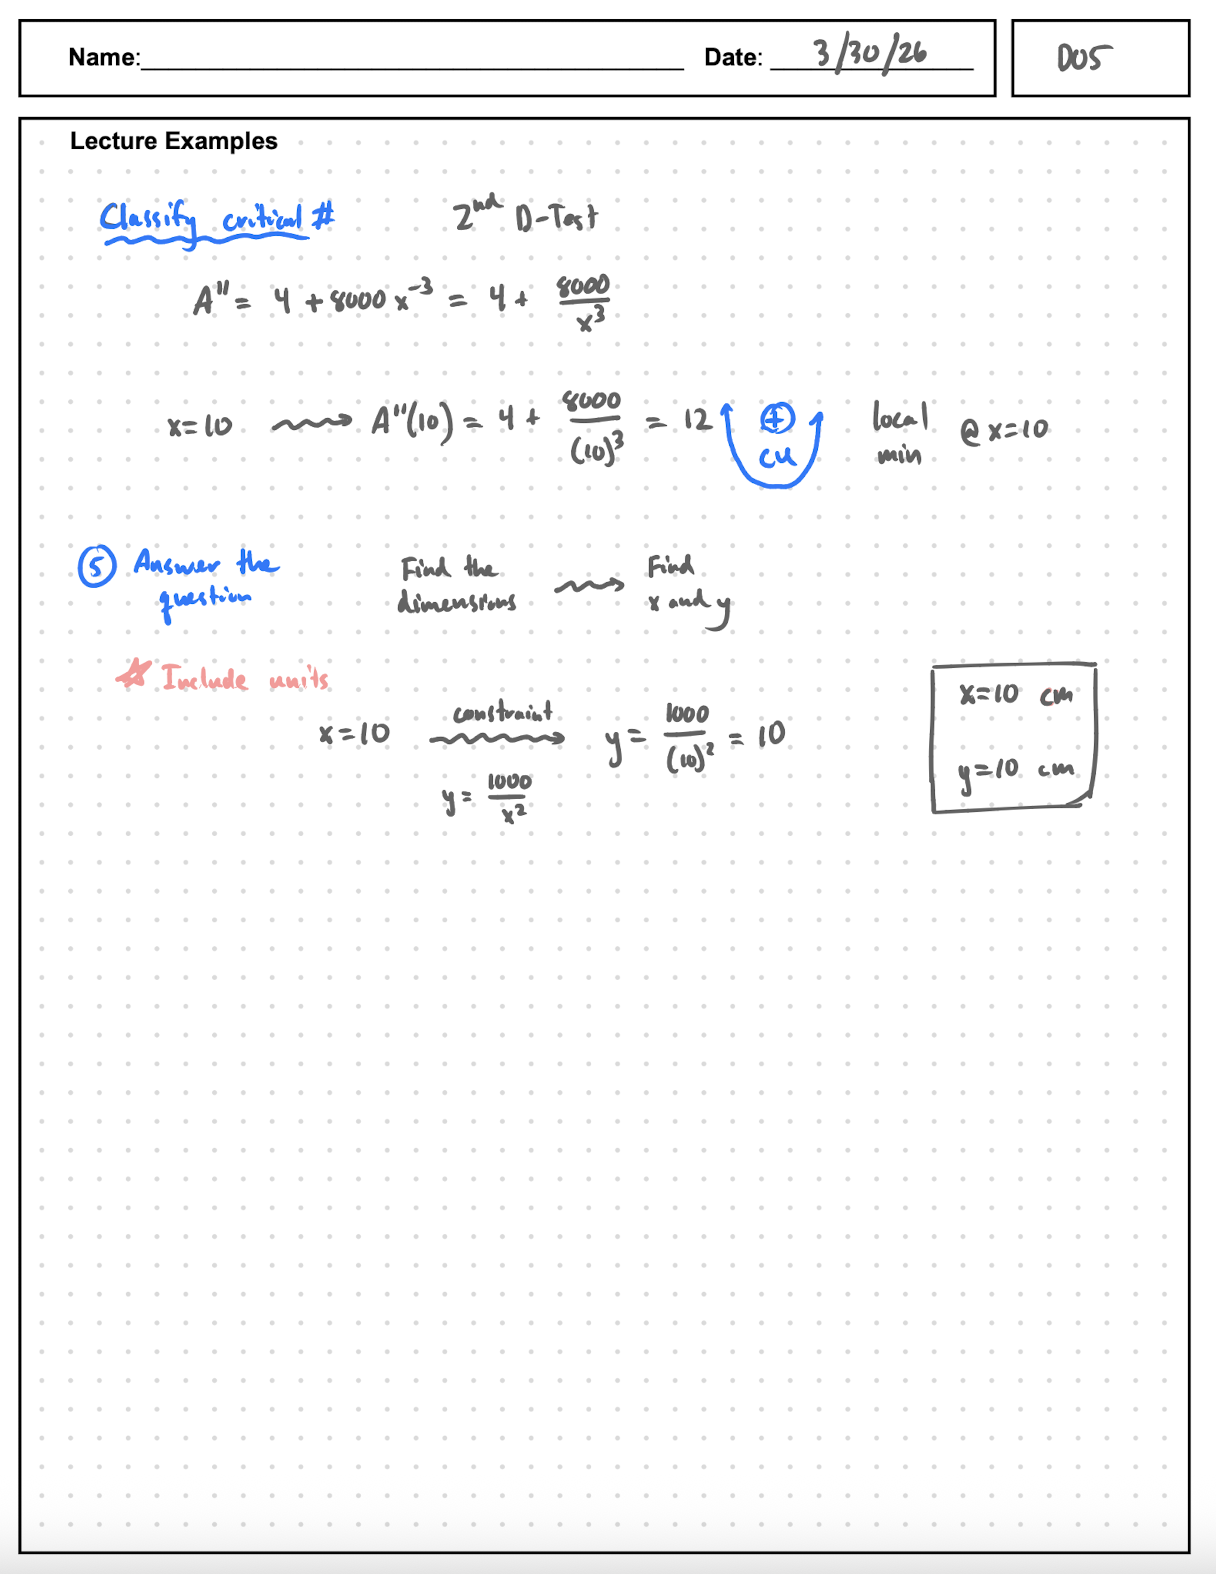 Name: Date: 3/30/26 D05
Lecture Examples
Classify critical # 2nd D-Test
A'' = 4 + 8000 x^-3 = 4 + 8000/x^3
x=10 A''(10) = 4 + 8000/(10)^3 = 12 + CU local min @ x=10
5 Answer the question Find the dimensions Find x and y
Include units
x=10 constraint y = 1000/(10)^2 = 10
y = 1000/x^2
x=10 cm
y=10 cm